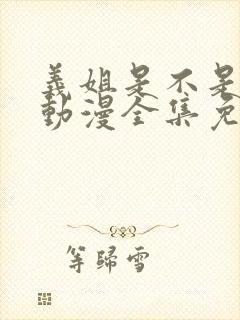 義姐是不是
動漫全集免
等歸雪